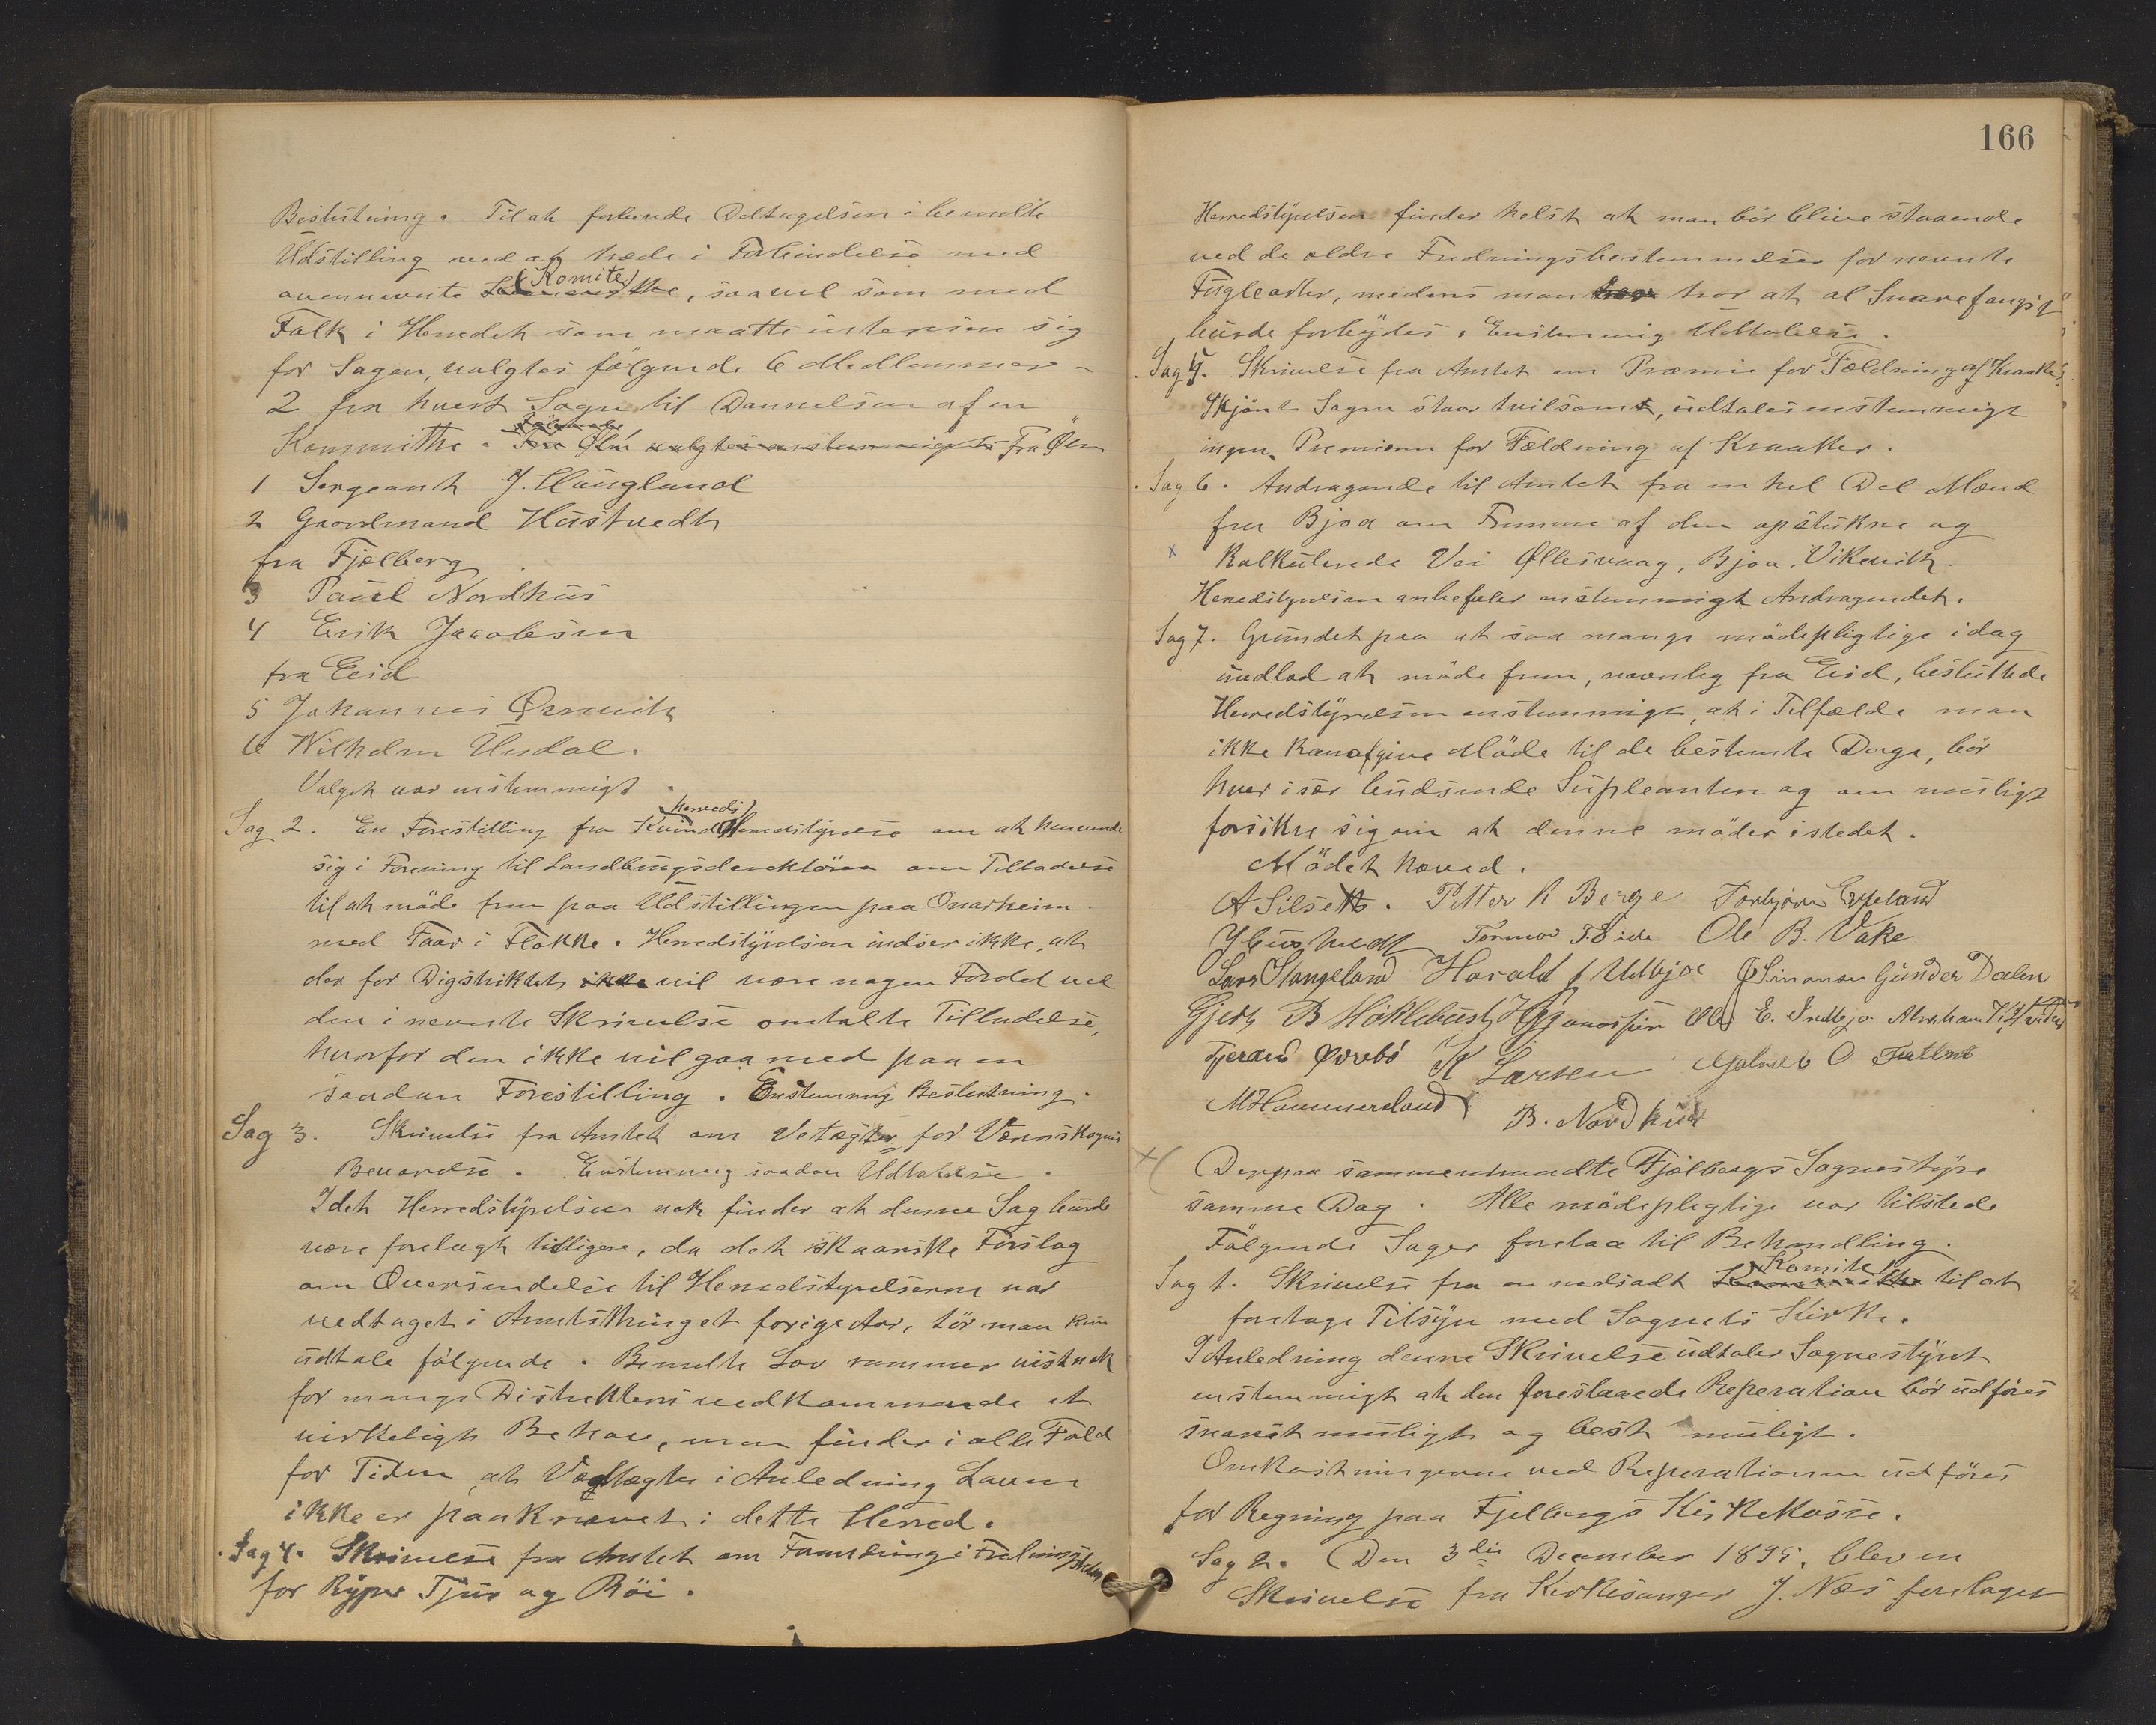 Beslutning. Til at forbende Deltagelsen i bemelte
Udstilling ved at træde i Forbindelse med
ovennevnte Komite, saavel som med
Folk i Herredet som maatte interesere sig
for Sagen, valgtes følgende 6 Medlemmer –
2 fra hvert Sogn til Dannelsen af en
Kommitthe. Fra Ølen
1 Sergeant J. Haugland
2 Gaardmand Hustvedt
fra Fjelberg
3 Paul Nordhus
4 Erik Jacobsen
fra Eid
5 Johannes Ørsvik
6 Wilhelm Undal.
Valget var enstemmigt.
Sag 2. En Forestilling fra Kvindherreds Herredstyrelse om at henvende
sig i Forening til Landbrugsderektøren om Tilladelse
til at møde frem paa Udstillingen paa Onarheim
med Faar i Flokke. Herredstyrelsen indser ikke, at
der for Digstriktet vil være nogen Fordel ved
den i nevnte Skrivelse omtalte Tilladelse,
hvorfor den ikke vil gaa med paa en
saadan Forestilling. Enstemmig Beslutning.
Sag 3. Skrivelse fra Amtet om Vetægter for Værnskogens
Bevarelse. Enstemmig saadan Udtalelse.
Idet Herredstyrelsen nok finder at denne Sag burde
være forelagt tidligere, da det skaarske Forslag
om Oversendelse til Herredstyrelserne var
vedtaget i Amtsthinget forige Aar, tør man kun
udtale følgende. Bemelte Lov rammer vistnok
for mange Distrikters vedkommende et
virkeligt Behov, men finder i alle Fald
for Tiden, at Vedtægter i Anledning Loven
ikke er paakrævet i dette Herred.
Sag 4. Skrivelse fra Amtet om Forandring i Fredningstiden
for Ryper Tjur og Röi.
166
Herredstyrelsen finder helst at man bør blive staaende
ved de ældre Fredningsbestemmelser for nevnte
Fuglearter, medens man tror at al Snarefangst
burde forbydes. Enstemmig Udtalelse.
Sag 5. Skrivelse fra Amtet om Præmie for Fældning af Kraaker.
Skjønt Sagen staar tvilsomt, udtales enstemmigt
ingen Premieen for Fældning af Kraaker.
Sag 6. Andragende til Amtet fra en hel Del Mænd
fra Bjoa om Fremme af den opstukne og
x Kalkulerede Vei Øllesvaag, Bjoa, Vikevik.
Herredstyrelsen anbefaler enstemmigt Andragendet.
Sag 7. Grundet paa at saa mange mødepligtige idag
undlod at møde frem, navnlig fra Eid, besluttede
Herredstyrelsen enstemmigt, at i Tilfælde man
ikke kan afgive Møde til de bestemte Dage, bør
hver især budsende Supleanten og om muligt
forsikre sig om at denne møder istedet.
Mødet hæved.
A Silseth. Petter R Berge Torbjørn Espeland
J Hustvedt Tormod F Eide Ole B. Vake
Lars Stangeland Harald J Udbjoe Simonsen Gunder Dalen
Gjert B Haktebust Ole E. Indbjo Abraham
Tjerand Øvrebö K Larsen O
M Hammersland B. Nordhus
x( Derpaa sammentraadte Fjelbergs Sognestyre
samme Dag. Alle mødeplegtige var tilstede
Følgende Sager forelaa til Behandling.
Sag 1. Skrivelse fra en nedsadt Komite til at
foretage Tilsyn med Sognets Kirke.
I Anledning denne Skrivelse udtaler Sognestyret
enstemmigt at den foreslaaede Reperation bør udføres
snarest muligt og best muligt.
Omkostningerne ved Reperationen udføres
for Regning paa Fjelbergs Kirkekasse.
Sag 2. Den 3die December 1895, blev en
Skrivelse fra Kirkesanger J. Næs foretaget